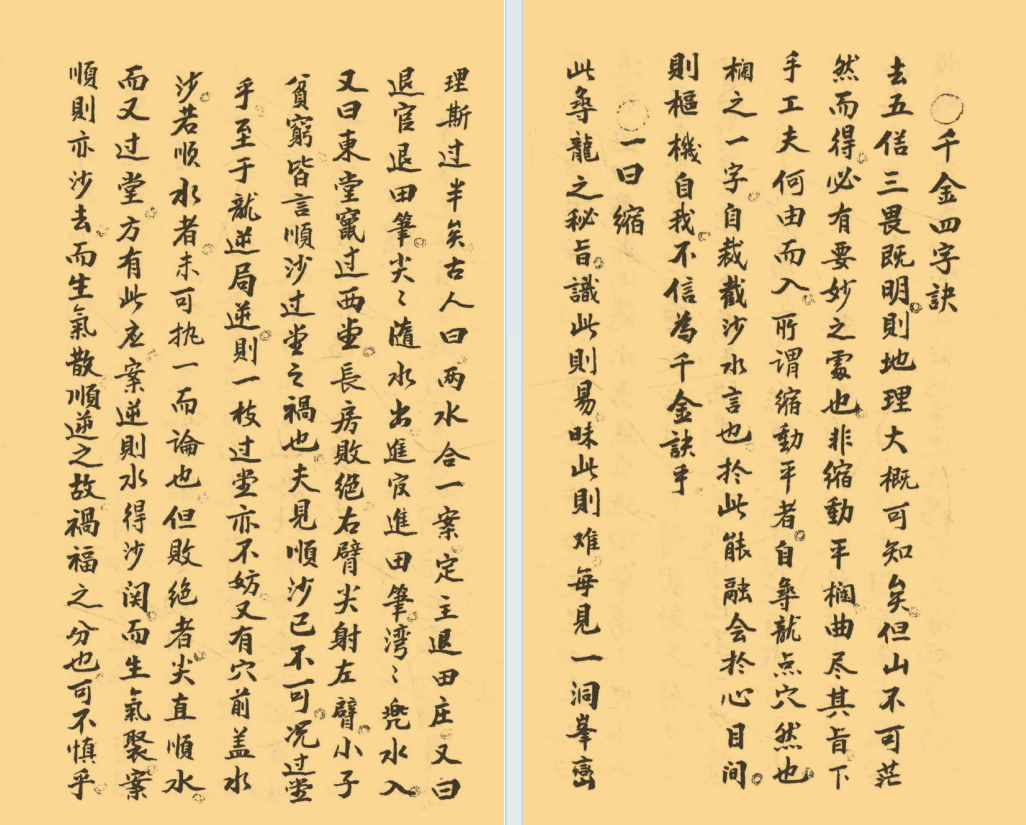 千金四字訣
去五俖三畏既明則地理大概可知矣但山不可茫
然而得必有要妙之處也非縮動平欄曲尽其旨下
手工夫何由而入所謂縮動平者自尋龍点穴然也
欄之一字自裁截沙水言也扵此能融会扵心目间
則樞機自我不信為千金訣乎
一曰縮
此尋龍之秘旨識此則易昧此則难每見一洞峯巒
理斯过半矣古人曰两水合一案定主退田庄又曰
退官退田筆尖〻隨水出進官進田筆湾〻兜水入
又曰東堂竄过西堂長房敗絕右臂尖射左臂小子
貧窮皆言順沙过堂之禍也夫見順沙已不可况过堂
乎至于龍逆局逆則一枝过堂亦不妨又有穴前盖水
沙若順水者未可执一而論也但敗絕者尖直順水
而又过堂方有此应案逆則水得沙関而生氣聚案
順則亦沙去而生氣散順逆之故禍福之分也可不慎乎